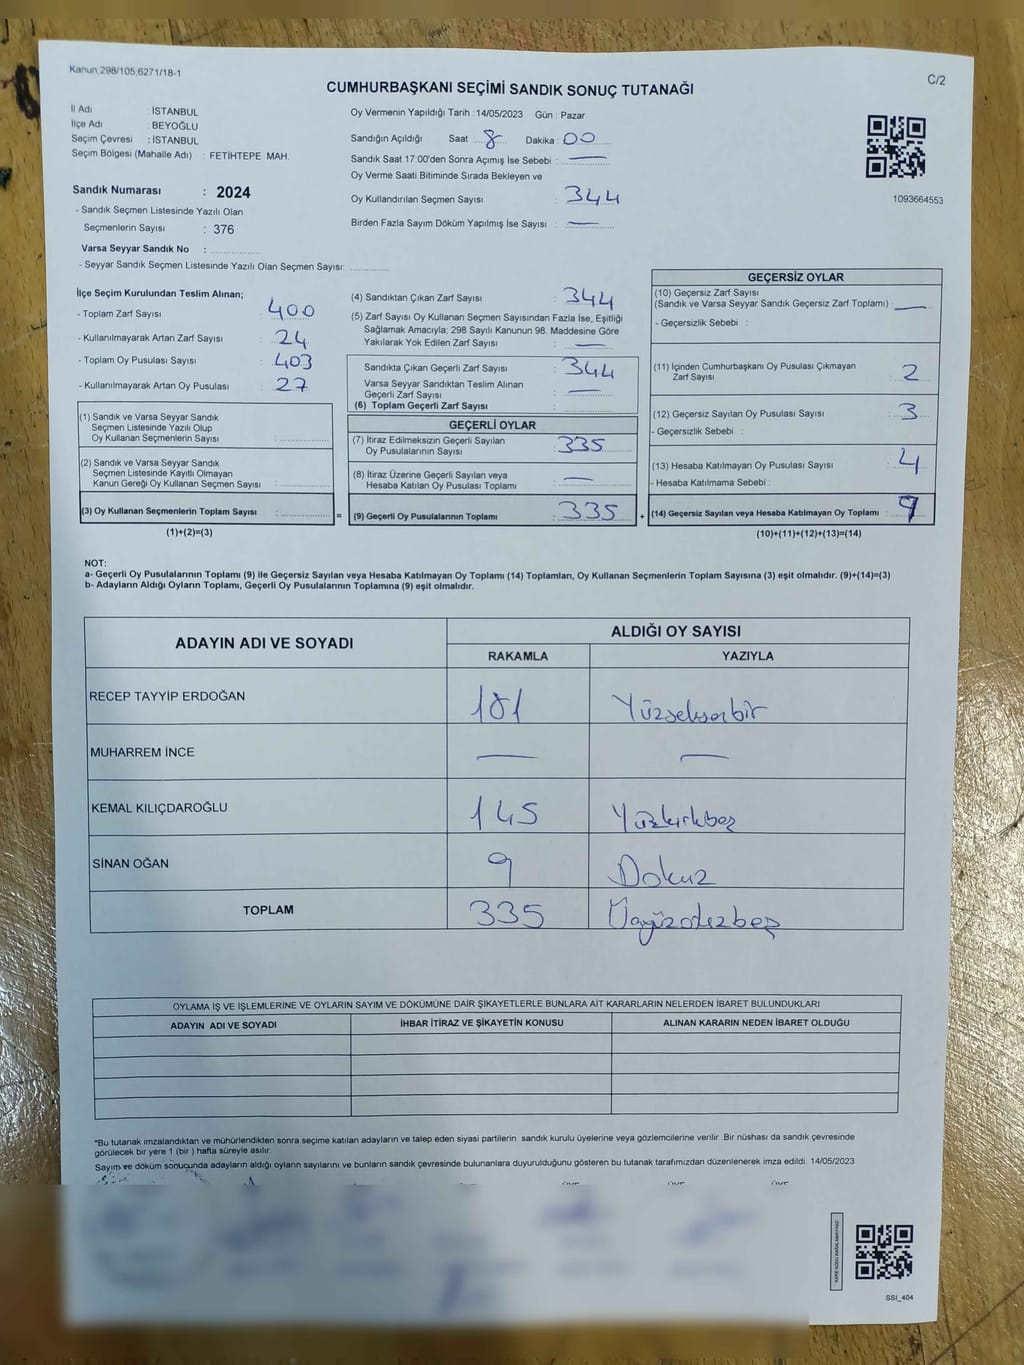 Kanun;298/105,6271/18-1
C/2
CUMHURBAŞKANI SEÇİMİ SANDIK SONUÇ TUTANAĞI
İl Adı : İSTANBUL
İlçe Adı : BEYOĞLU
Seçim Çevresi : İSTANBUL
Seçim Bölgesi (Mahalle Adı) : FETİHTEPE MAH.
Oy Vermenin Yapıldığı Tarih : 14/05/2023 Gün : Pazar
Sandığın Açıldığı Saat : 8 Dakika : 00
Sandık Saat 17:00'den Sonra Açımış İse Sebebi : —
Oy Verme Saati Bitiminde Sırada Bekleyen ve
Oy Kullandırılan Seçmen Sayısı : 344
Birden Fazla Sayım Döküm Yapılmış İse Sayısı : —
1093664553
Sandık Numarası : 2024
- Sandık Seçmen Listesinde Yazılı Olan
Seçmenlerin Sayısı : 376
Varsa Seyyar Sandık No :
- Seyyar Sandık Seçmen Listesinde Yazılı Olan Seçmen Sayısı:
İlçe Seçim Kurulundan Teslim Alınan;
- Toplam Zarf Sayısı : 400
- Kullanılmayarak Artan Zarf Sayısı : 24
- Toplam Oy Pusulası Sayısı : 403
- Kullanılmayarak Artan Oy Pusulası : 27
(1) Sandık ve Varsa Seyyar Sandık
Seçmen Listesinde Yazılı Olup
Oy Kullanan Seçmenlerin Sayısı :
(2) Sandık ve Varsa Seyyar Sandık
Seçmen Listesinde Kayıtlı Olmayan
Kanun Gereği Oy Kullanan Seçmen Sayısı :
(3) Oy Kullanan Seçmenlerin Toplam Sayısı :
(1)+(2)=(3)
=
(4) Sandıktan Çıkan Zarf Sayısı : 344
(5) Zarf Sayısı Oy Kullanan Seçmen Sayısından Fazla İse, Eşitliği
Sağlamak Amacıyla; 298 Sayılı Kanunun 98. Maddesine Göre
Yakılarak Yok Edilen Zarf Sayısı : —
Sandıkta Çıkan Geçerli Zarf Sayısı : 344
Varsa Seyyar Sandıktan Teslim Alınan
Geçerli Zarf Sayısı : —
(6) Toplam Geçerli Zarf Sayısı :
GEÇERLİ OYLAR
(7) İtiraz Edilmeksizin Geçerli Sayılan
Oy Pusulalarının Sayısı : 335
(8) İtiraz Üzerine Geçerli Sayılan veya
Hesaba Katılan Oy Pusulası Toplamı : —
(9) Geçerli Oy Pusulalarının Toplamı : 335
+
GEÇERSİZ OYLAR
(10) Geçersiz Zarf Sayısı
(Sandık ve Varsa Seyyar Sandık Geçersiz Zarf Toplamı) : —
- Geçersizlik Sebebi :
(11) İçinden Cumhurbaşkanı Oy Pusulası Çıkmayan
Zarf Sayısı : 2
(12) Geçersiz Sayılan Oy Pusulası Sayısı : 3
- Geçersizlik Sebebi :
(13) Hesaba Katılmayan Oy Pusulası Sayısı : 4
- Hesaba Katılmama Sebebi :
(14) Geçersiz Sayılan veya Hesaba Katılmayan Oy Toplamı : 9
(10)+(11)+(12)+(13)=(14)
NOT:
a- Geçerli Oy Pusulalarının Toplamı (9) ile Geçersiz Sayılan veya Hesaba Katılmayan Oy Toplamı (14) Toplamları, Oy Kullanan Seçmenlerin Toplam Sayısına (3) eşit olmalıdır. (9)+(14)=(3)
b- Adayların Aldığı Oyların Toplamı, Geçerli Oy Pusulalarının Toplamına (9) eşit olmalıdır.
ADAYIN ADI VE SOYADI
ALDIĞI OY SAYISI
RAKAMLA YAZIYLA
RECEP TAYYİP ERDOĞAN 181 Yüzseksenbir
MUHARREM İNCE — —
KEMAL KILIÇDAROĞLU 145 Yüzkırkbeş
SİNAN OĞAN 9 Dokuz
TOPLAM 335 Üçyüzotuzbeş
OYLAMA İŞ VE İŞLEMLERİNE VE OYLARIN SAYIM VE DÖKÜMÜNE DAİR ŞİKAYETLERLE BUNLARA AİT KARARLARIN NELERDEN İBARET BULUNDUKLARI
ADAYIN ADI VE SOYADI İHBAR İTİRAZ VE ŞİKAYETİN KONUSU ALINAN KARARIN NEDEN İBARET OLDUĞU
*Bu tutanak imzalandıktan ve mühürlendikten sonra seçime katılan adayların ve talep eden siyasi partilerin sandık kurulu üyelerine veya gözlemcilerine verilir .Bir nüshası da sandık çevresinde
görülecek bir yere 1 (bir ) hafta süreyle asılır.
Sayım ve döküm sonucunda adayların aldığı oyların sayılarını ve bunların sandık çevresinde bulunanlara duyurulduğunu gösteren bu tutanak tarafımızdan düzenlenerek imza edildi. 14/05/2023
SSI_404